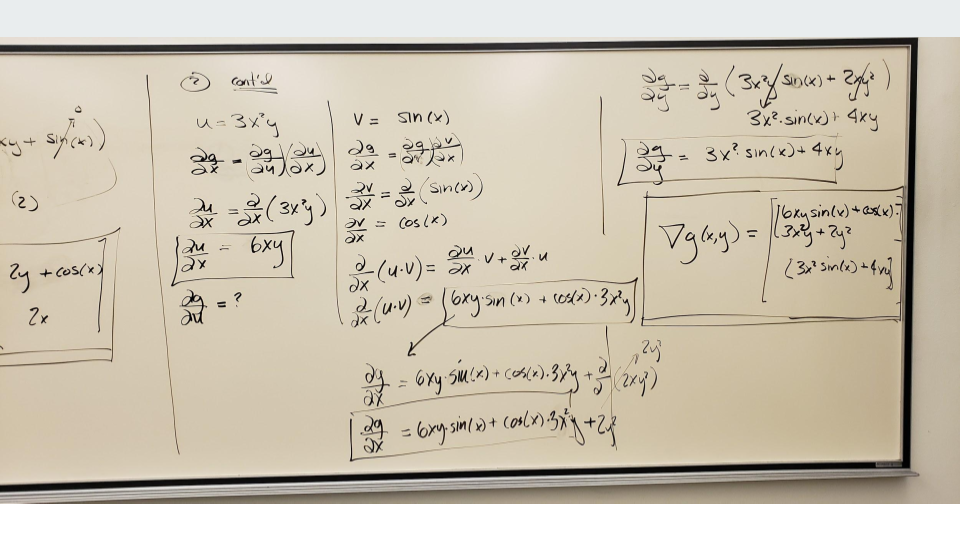 xy + sin(x))
0
(2)
2y + cos(x)
2x
2 cont'd
u = 3x²y
∂g/∂x = (∂g/∂u)(∂u/∂x)
∂u/∂x = ∂/∂x (3x²y)
∂u/∂x = 6xy
∂g/∂u = ?
v = sin(x)
∂g/∂x = (∂g/∂v)(∂v/∂x)
∂v/∂x = ∂/∂x (sin(x))
∂v/∂x = cos(x)
∂/∂x (u·v) = ∂u/∂x · v + ∂v/∂x · u
∂/∂x (u·v) = 6xy·sin(x) + cos(x)·3x²y
2y²
∂g/∂x = 6xy·sin(x) + cos(x)·3x²y + ∂/∂ (2xy²)
∂g/∂x = 6xy·sin(x) + cos(x)·3x²y + 2y²
∂g/∂y = ∂/∂y (3x²y sin(x) + 2xy²)
3x²·sin(x) + 4xy
∂g/∂y = 3x²·sin(x) + 4xy
∇g(x,y) = [6xy sin(x) + cos(x)·
3x²y + 2y²
(3x² sin(x) + 4xy]